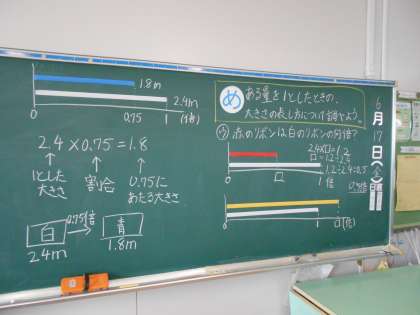 1.8m
2.4m
0 0.75 1 (倍)
2.4×0.75=1.8
1とした
大きさ
割合
0.75に
あたる大きさ
白 0.75倍 青
2.4m 1.8m
め ある量を1としたときの、
大きさの表し方について調べよう。
ウ 赤のリボンは白のリボンの何倍?
2.4×□=1.2
□=1.2÷2.4
1.2÷2.4=0.5
0 □ 1 倍
0.5倍
0 1 □(倍)
6
月
17
日
(金)